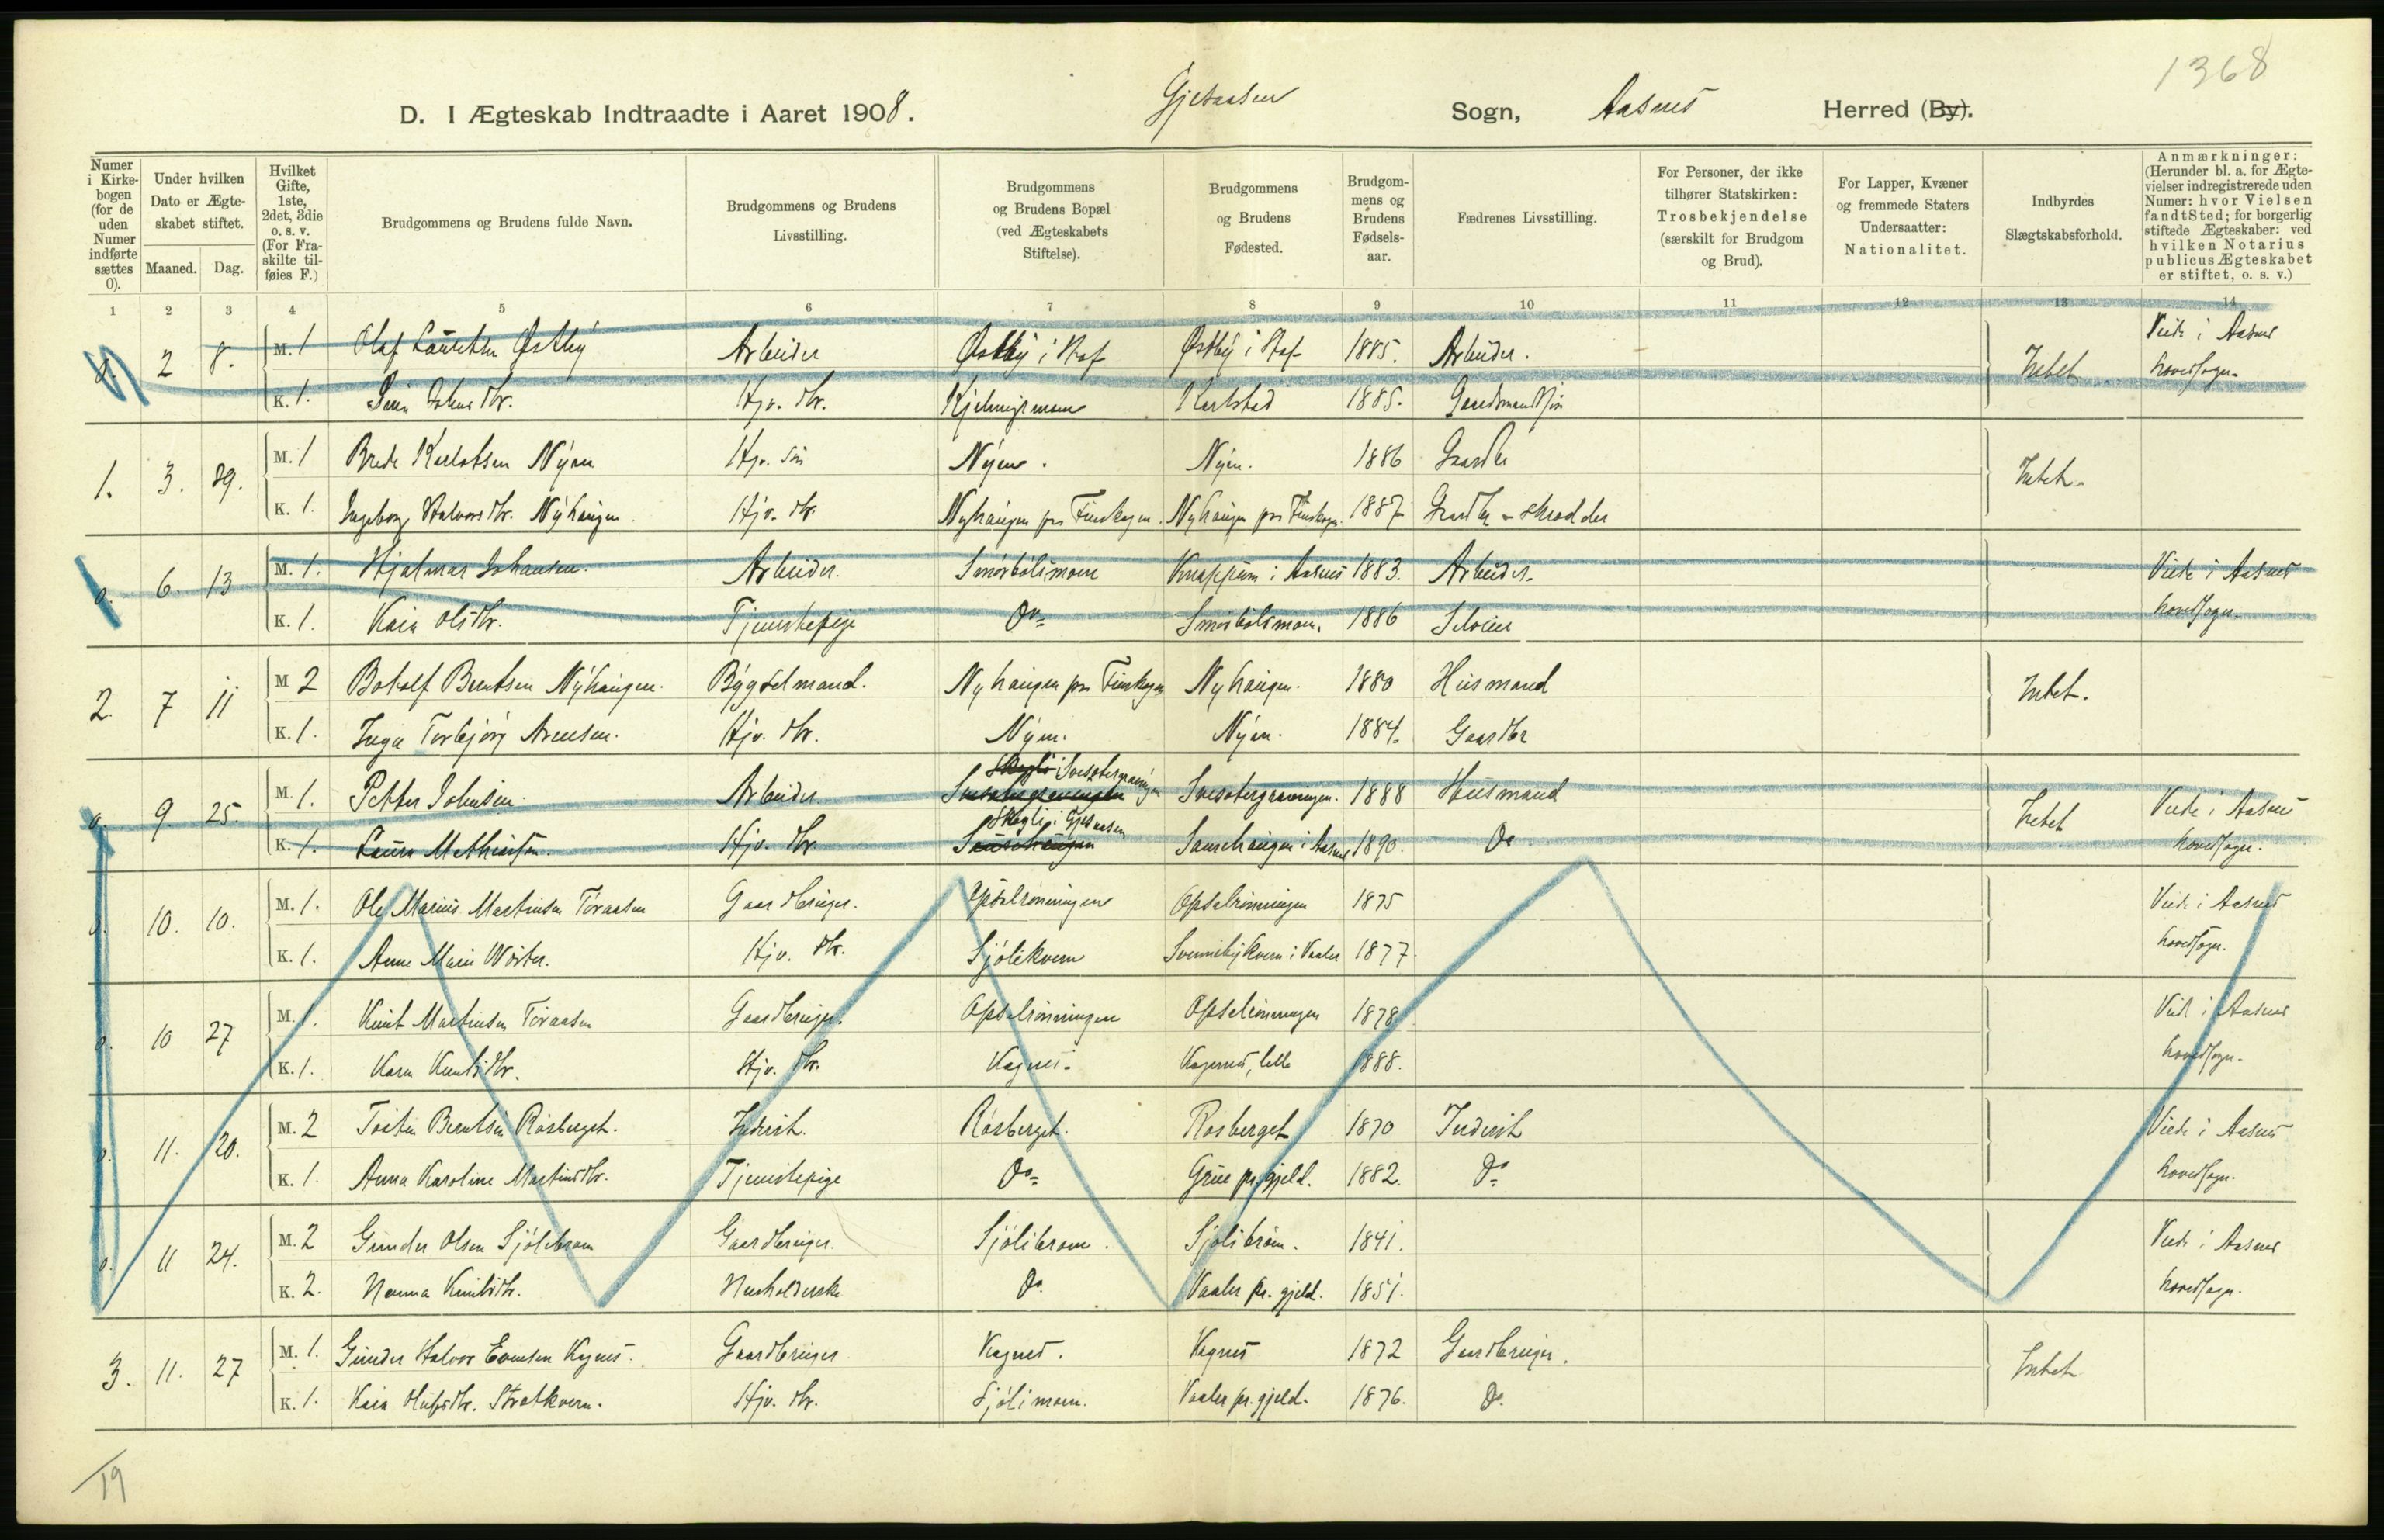 1368
D. I Ægteskab Indtraadte i Aaret 1908. Gjesaasen Sogn, Aasnes Herred (By).
Numer i Kirkebogen (for de uden Numer indførte sættes 0).
Under hvilken Dato er Ægteskabet stiftet.
Maaned. Dag.
Hvilket Gifte, 1ste, 2det, 3die o. s. v. (For Fraskilte tilføies F.)
Brudgommens og Brudens fulde Navn.
Brudgommens og Brudens Livsstilling.
Brudgommens og Brudens Bopæl (ved Ægteskabets Stiftelse).
Brudgommens og Brudens Fødested.
Brudgommens og Brudens Fødselsaar.
Fædrenes Livsstilling.
For Personer, der ikke tilhører Statskirken: Trosbekjendelse (særskilt for Brudgom og Brud).
For Lapper, Kvæner og fremmede Staters Undersaatter: Nationalitet.
Indbyrdes Slægtskabsforhold.
Anmærkninger: (Herunder bl. a. for Ægtevielser indregistrerede uden Numer: hvor Vielsen fandt Sted; for borgerlig stiftede Ægteskaber: ved hvilken Notarius publicus Ægteskabet er stiftet, o. s. v.)
1 2 3 4 5 6 7 8 9 10 11 12 13 14
0. 2 8. M. 1 Olaf Lauritsen Østby Arbeider Østby i Hof Østby i Hof 1885. Arbeider. Intet Viede i Aasnes
K. 1. Johnsdtr. Hjv. dtr. Karlstad 1885. hovedsogn.
1. 3. 29. M. 1 Brede Karlotsen Nyen Hjv. søn Nyen. Nyen. 1886 Gaardbr Intet.
K. 1. Ingeborg Halvorsdtr. Nyhaugen. Hjv. dtr. Nyhaugen pr Finskogen. Nyhaugen pr Finskogen. 1887 Gaardbr - skrædder
0. 6. 13 M. 1. Hjalmar Johansen. Arbeider. Smørbølsmoen Knappum i Aasnes 1883. Arbeider. Viede i Aasnes
K. 1. Kaia Olsdtr. Tjenestepige Do Smørbølsmoen. 1886 Seleier hovedsogn.
2. 7 11 M 2 Botolf Berntsen Nyhaugen. Bygselmand. Nyhaugen pr Finskogen Nyhaugen. 1880 Husmand Intet.
K. 1. Inga Torbjørg Arnesen. Hjv. dtr. Nyen. Nyen. 1884. Gaardbr
0. 9. 25. M. 1. Petter Johnsen Arbeider 1888 Husmand Intet Viede i Aasnes
K. 1. Laura Mathiasen. Hjv. dtr Skogli i Gjesaasen 1890. Do hovedsogn.
0. 10. 10. M. 1. Ole Marius Martinsen Toraasen Gaardbruger. Opsalrønningen Opsalrønningen 1875 Viede i Aasnes
K. 1. Anne Marie Hjv. dtr. Sjølikvern Svennebykvern i Vaaler 1877. hovedsogn.
0. 10 27 M. 1. Knut Martinsen Toraasen Gaardbruger. Opsalrønningen Opsalrønningen 1878 Viede i Aasnes
K. 1. Karen Knutsdtr. Hjv. dtr. Kagnes. Kagnes, lille 1888. hovedsogn.
0. 11. 20. M. 2 Tosten Berntsen Rosberget. Inderst. Rosberget. Rosberget 1870 Inderst Viede i Aasnes
K. 1. Anna Karoline Martinsdtr. Tjenestepige Do Grue pr.gjeld. 1882. Do hovedsogn.
0. 11 24. M. 2 Gunder Olsen Sjølibroen Gaardbruger. Sjølibroen. Sjølibroen. 1841. Viede i Aasnes
K. 2. Hanna Knutsdtr. Husholderske Do. Vaaler pr. gjeld. 1851. hovedsogn.
3. 11. 27 M. 1. Gunder Halvor Evensen Kagnes. Gaardbruger Kagnes. Kagnes 1872 Gaardbruger. Intet
K. 1. Kaia Olufsdtr. Stratkvern. Hjv. dtr. Sjølimoen. Vaaler pr. gjeld. 1876. Do.
19